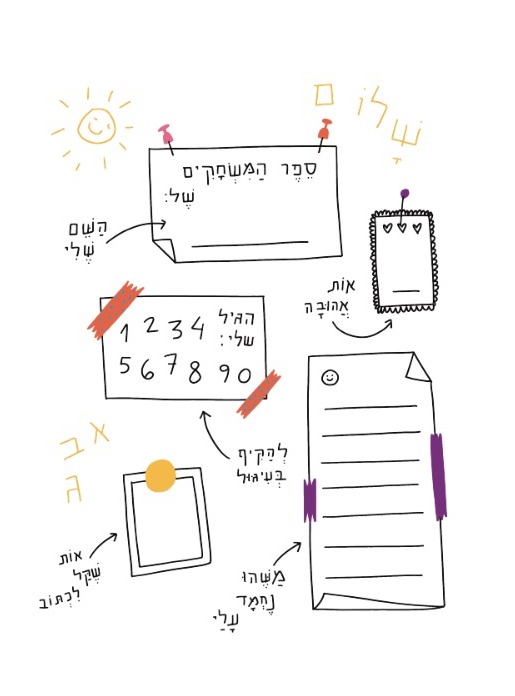 שָׁלוֹם
סֵפֶר הַמִּשְׂחָקִים
שֶׁל:
הַשֵּׁם
שֶׁלִּי
אוֹת
אֲהוּבָה
הגיל
שלי:
1 2 3 4
5 6 7 8 9 0
לְהַקִּיף
בְּעִיגּוּל
א ב
ג
אוֹת
שֶׁקַל
לִכְתּוֹב
מַשֶּׁהוּ
נֶחְמָד
עָלַי